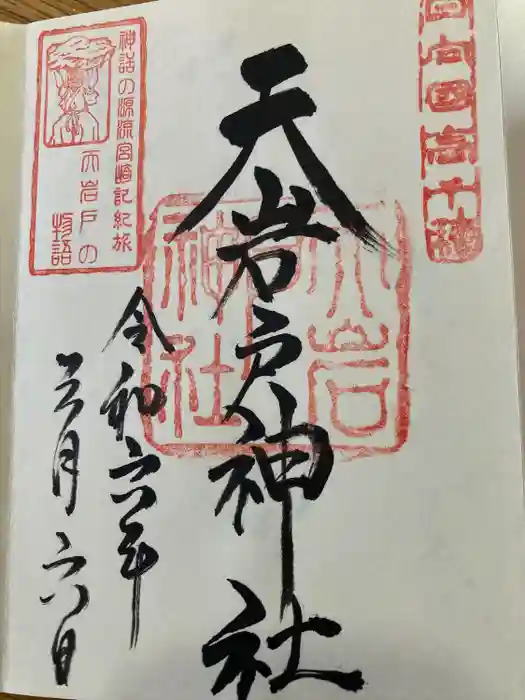 日向国高千穂
天岩戸神社
天岩戸
神社
神話の源流宮崎記紀旅
天岩戸の
物語
令和六年
三月六日